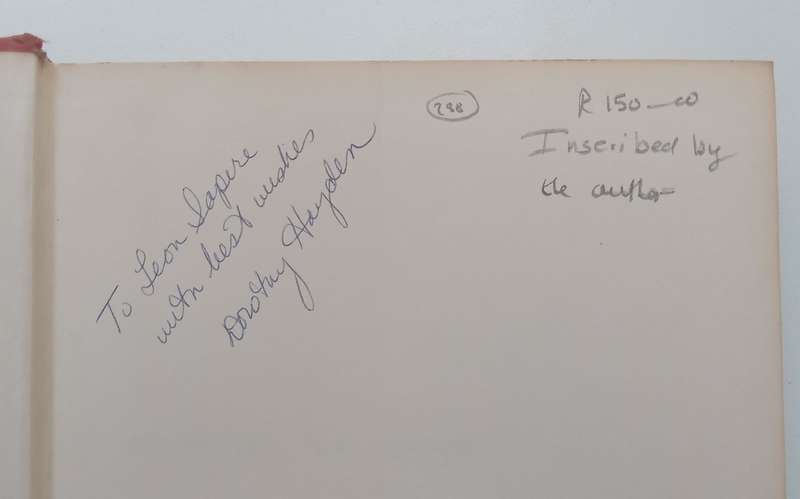 288
R 150-00
Inscribed by
the author
To Leon Sapire
with best wishes
Dorothy Hayden